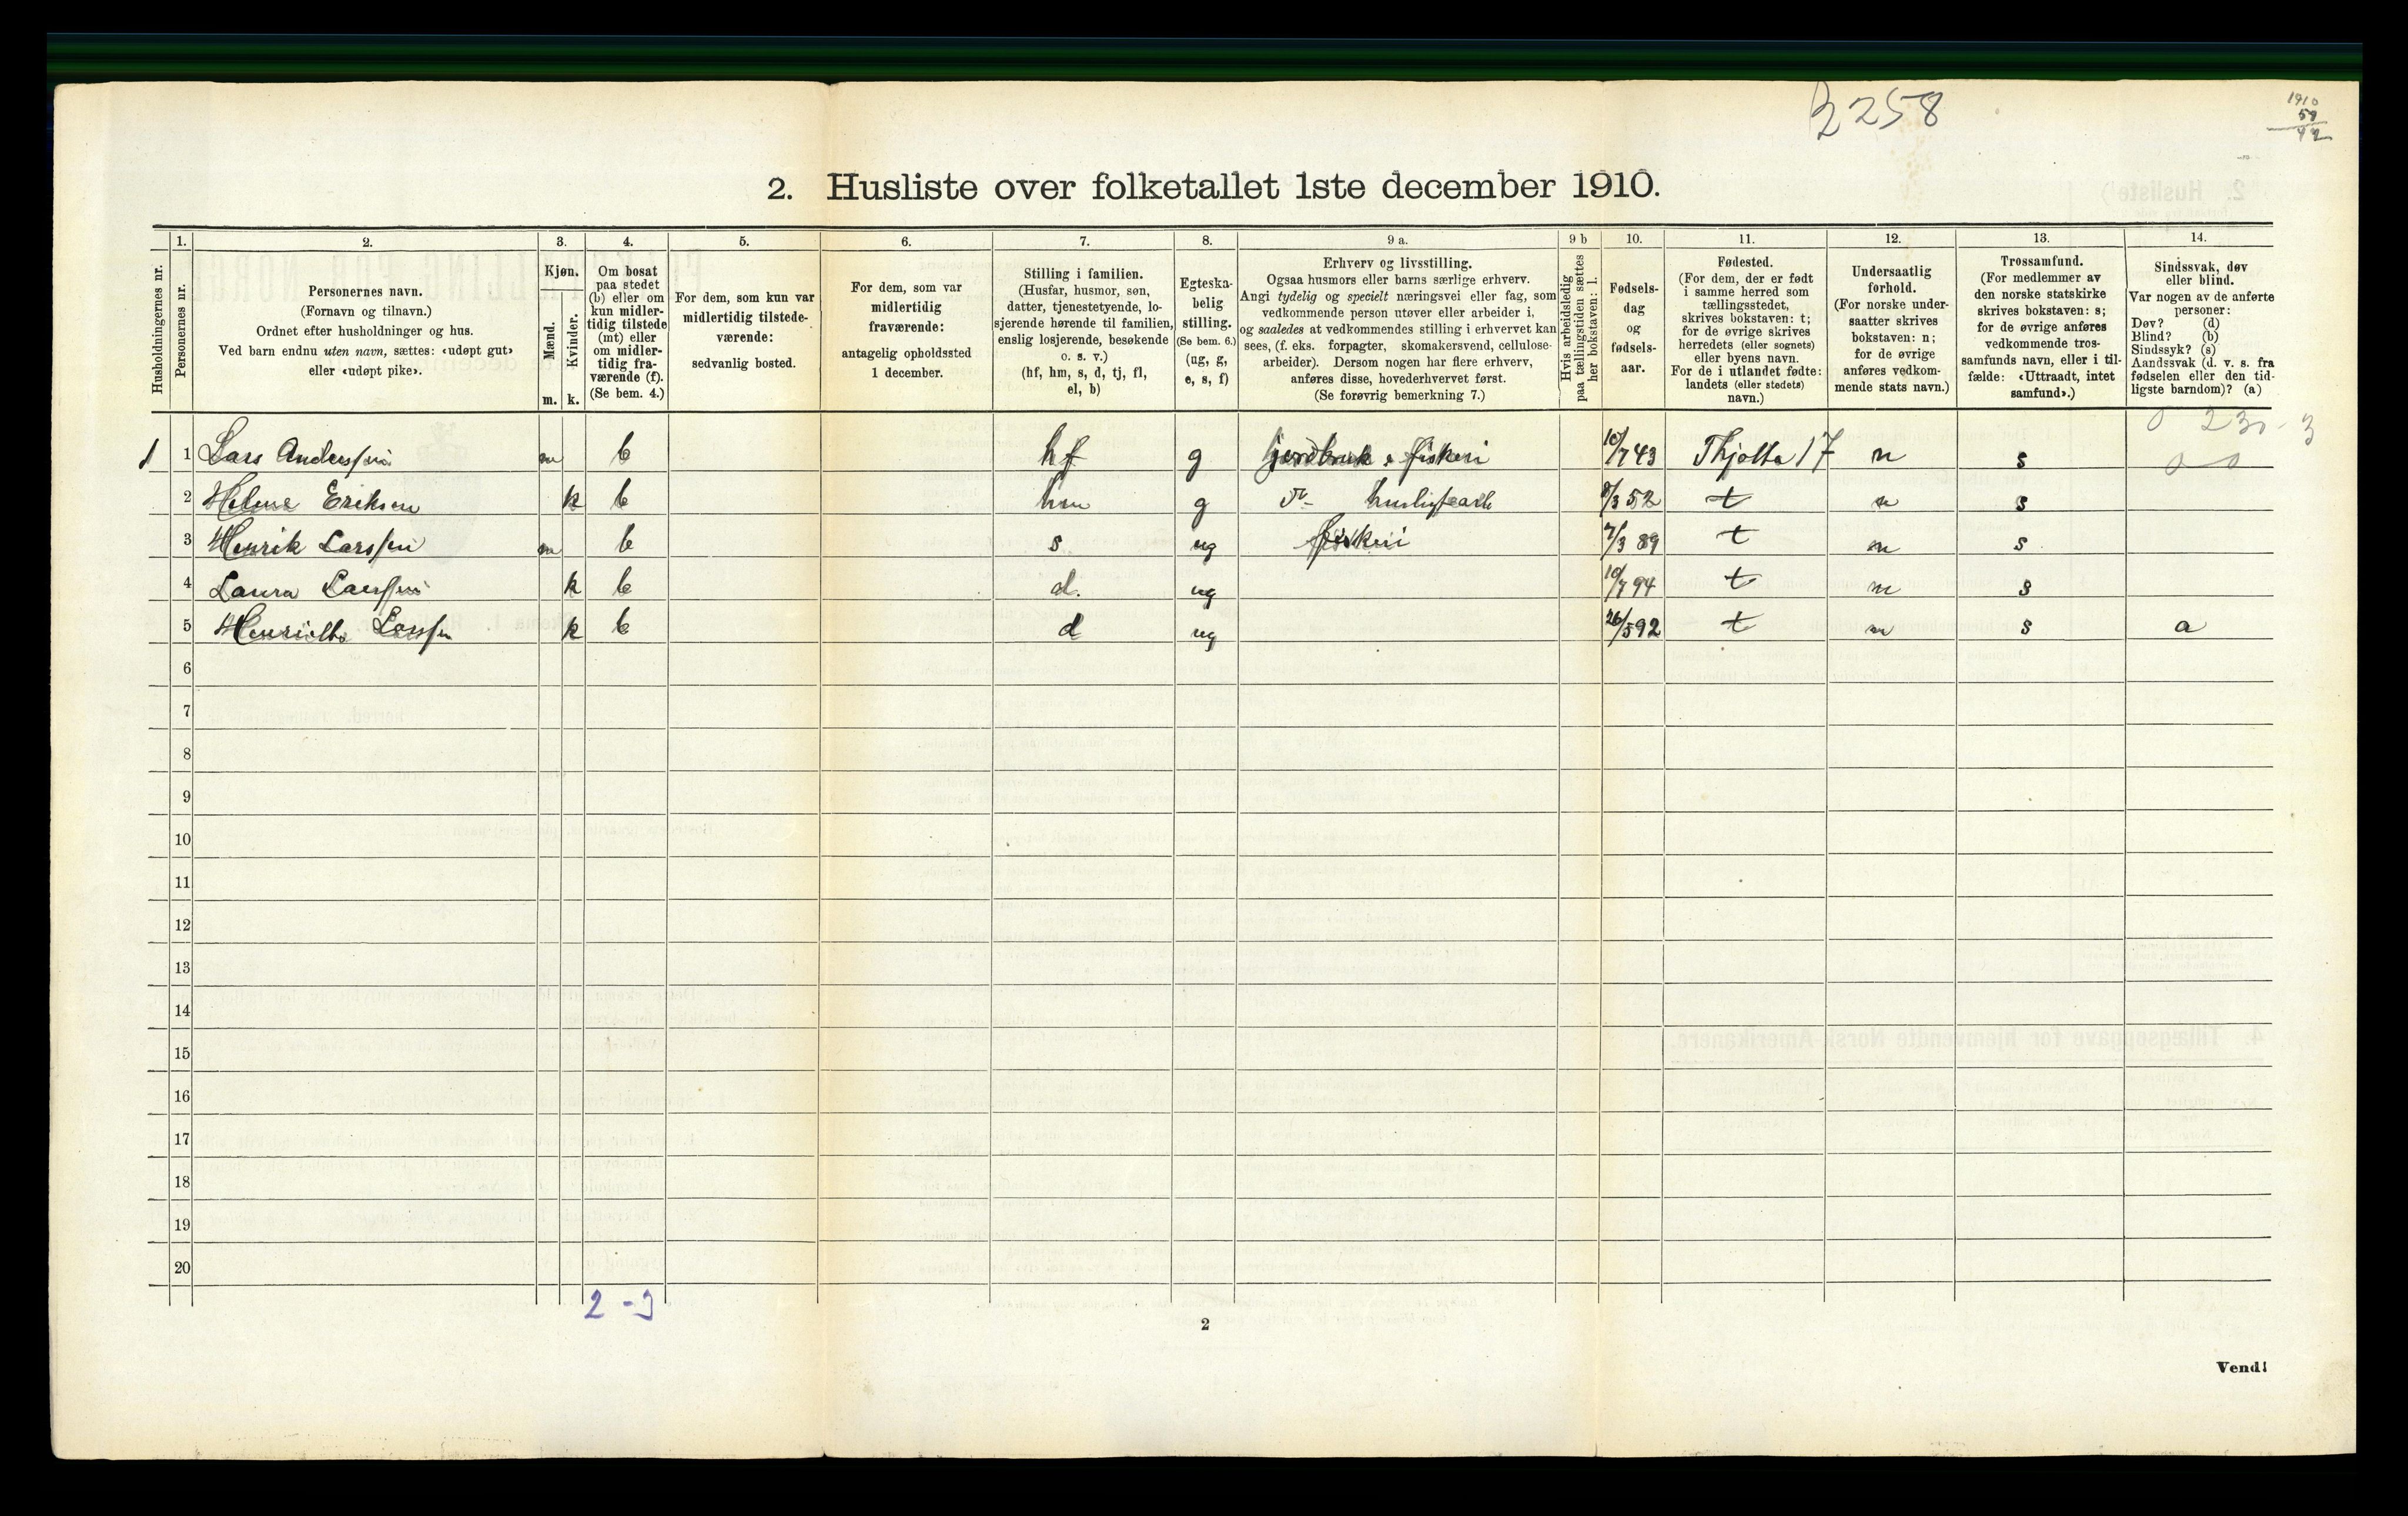 3258
1910
2. Husliste over folketallet 1ste december 1910.
Husholdningernes nr.
1.
Personernes nr.
2.
Personernes navn.
(Fornavn og tilnavn.)
Ordnet efter husholdninger og hus.
Ved barn endnu uten navn, sættes: «udøpt gut»
eller «udøpt pike».
3.
Kjøn.
Mænd.
Kvinder.
m. k.
4.
Om bosat
paa stedet
(b) eller om
kun midler-
tidig tilstede
(mt) eller
om midler-
tidig fra-
værende (f).
(Se bem. 4.)
5.
For dem, som kun var
midlertidig tilstede-
værende:
sedvanlig bosted.
6.
For dem, som var
midlertidig
fraværende:
antagelig opholdssted
1 december.
7.
Stilling i familien.
(Husfar, husmor, søn,
datter, tjenestetyende, lo-
sjerende hørende til familien,
enslig losjerende, besøkende
o. s. v.)
(hf, hm, s, d, tj, fl,
el, b)
8.
Egteska-
belig
stilling.
(Se bem. 6.)
(ug, g,
e, s, f)
9 a.
Erhverv og livsstilling.
Ogsaa husmors eller barns særlige erhverv.
Angi tydelig og specielt næringsvei eller fag, som
vedkommende person utøver eller arbeider i,
og saaledes at vedkommendes stilling i erhvervet kan
sees, (f. eks. forpagter, skomakersvend, cellulose-
arbeider). Dersom nogen har flere erhverv,
anføres disse, hovederhvervet først.
(Se forøvrig bemerkning 7.)
9 b
Hvis arbeidsledig
paa tællingstiden sættes
her bokstaven: l.
10.
Fødsels-
dag
og
fødsels-
aar.
11.
Fødested.
(For dem, der er født
i samme herred som
tællingsstedet,
skrives bokstaven: t;
for de øvrige skrives
herredets (eller sognets)
eller byens navn.
For de i utlandet fødte:
landets (eller stedets)
navn.)
12.
Undersaatlig
forhold.
(For norske under-
saatter skrives
bokstaven: n;
for de øvrige
anføres vedkom-
mende stats navn.)
13.
Trossamfund.
(For medlemmer av
den norske statskirke
skrives bokstaven: s;
for de øvrige anføres
vedkommende tros-
samfunds navn, eller i til-
fælde: «Uttraadt, intet
samfund».)
14.
Sindssvak, døv
eller blind.
Var nogen av de anførte
personer:
Døv? (d)
Blind? (b)
Sindssyk? (s)
Aandssvak (d. v. s. fra
fødselen eller den tid-
ligste barndom)? (a)
1 1 Lars Anderssen m b hf g jordbruk & fiskeri 10/7 43 Thjotta 17 n s
2 Helene Eriksen k b hm g 8/3 52 t n s
3 Henrik Larssen m b s ug fiskeri 7/3 89 t n s
4 Laura Larssen k b d. ug 10/7 94 t n s
5 Larssen k b d ug 26/5 92 t n s a
6
7
8
9
10
11
12
13
14
15
16
17
18
19
20
2 - 3
2
Vend!